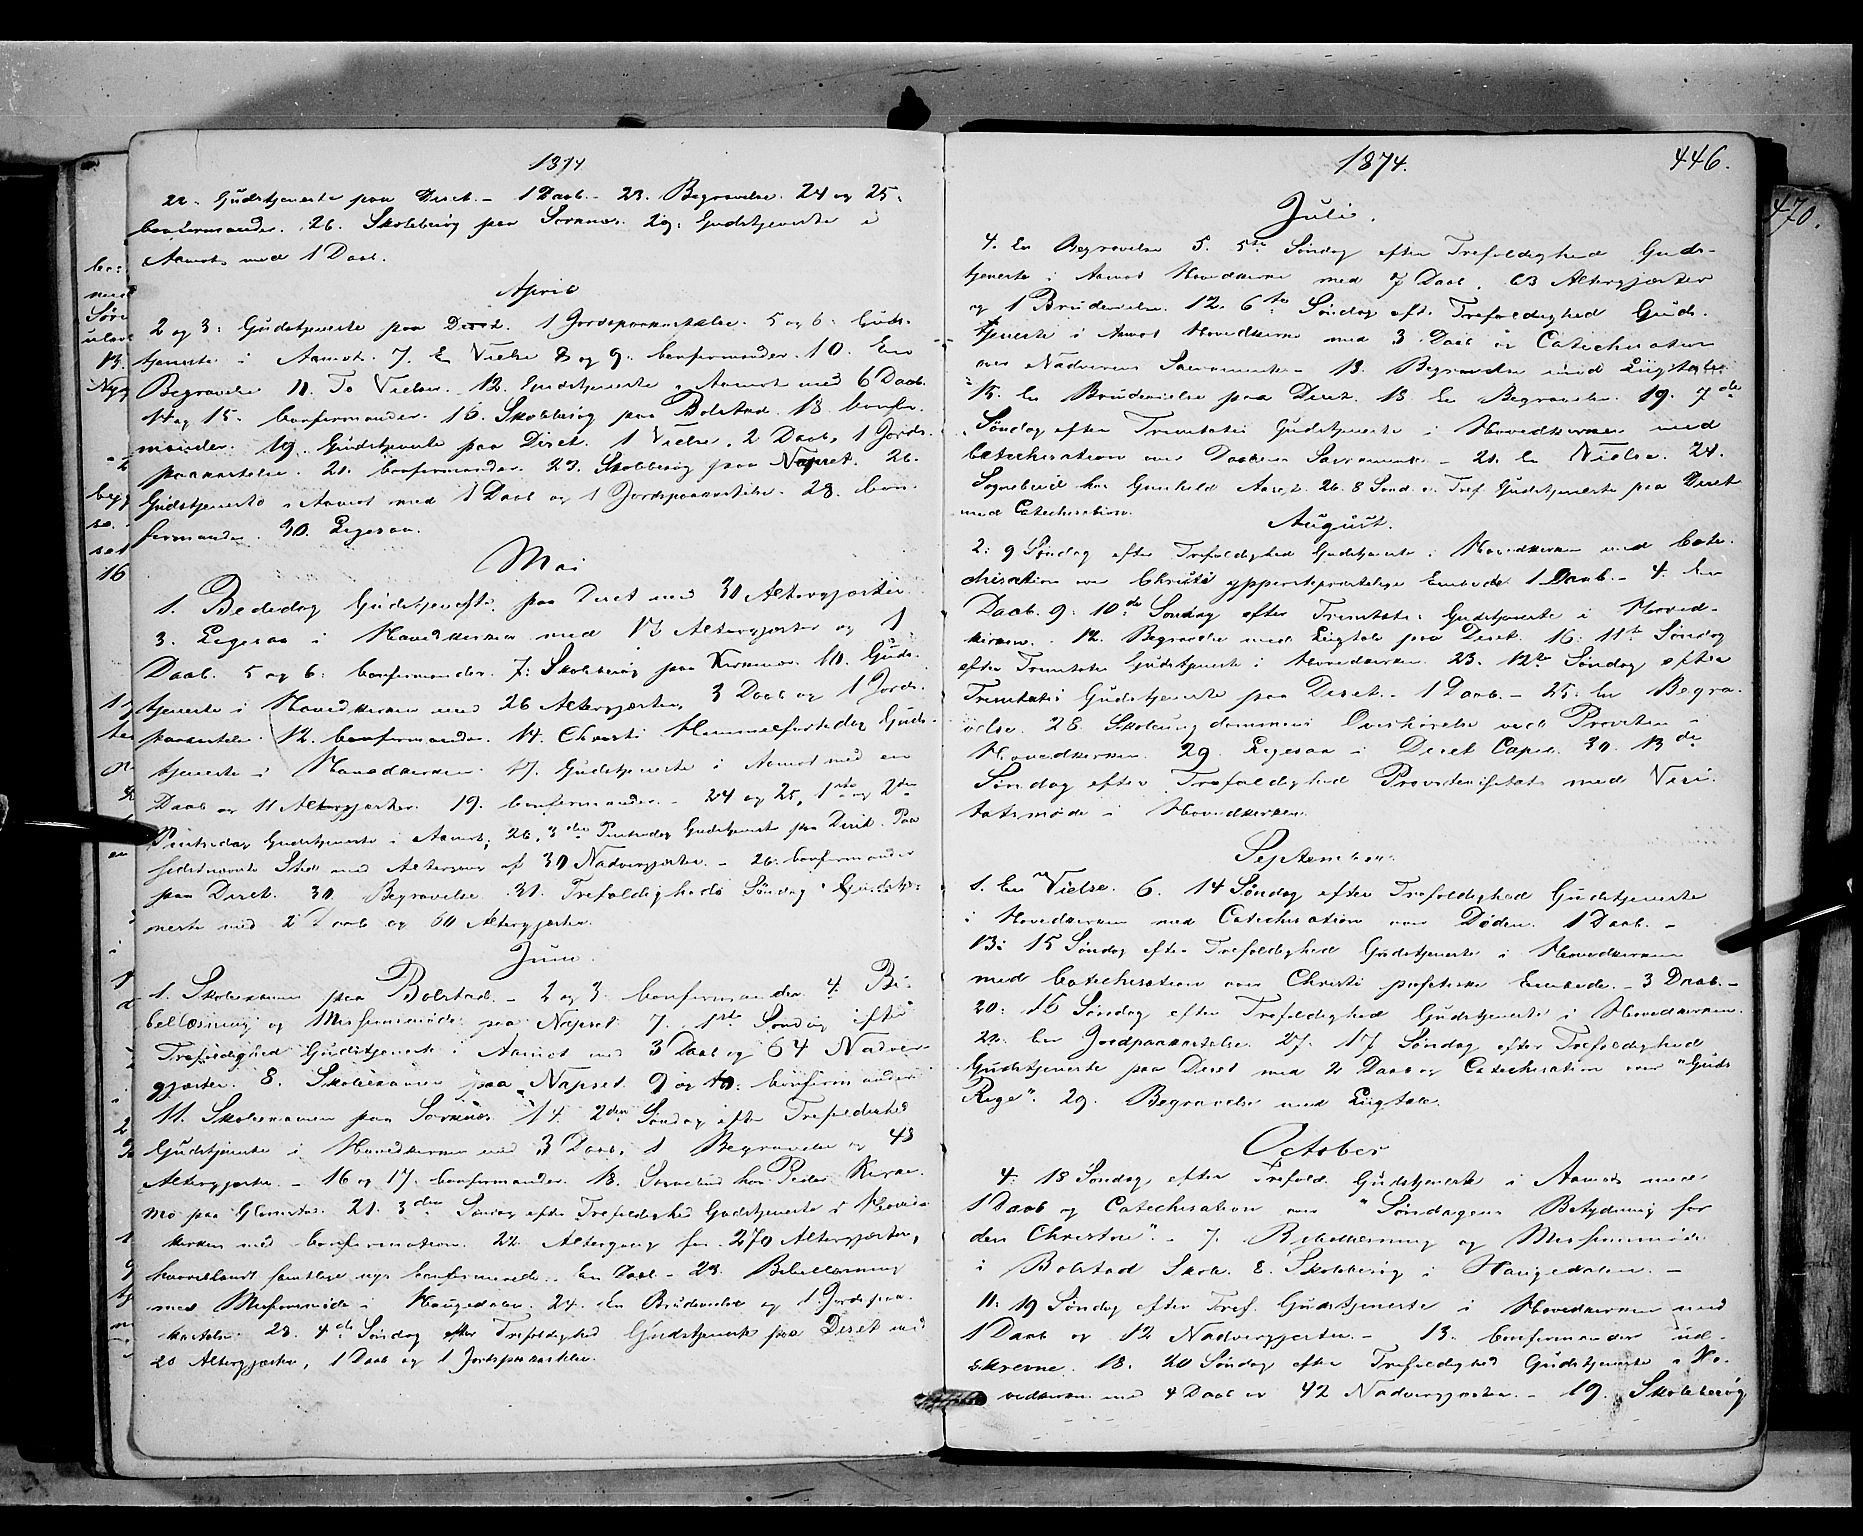 1874
22. Gudstjeneste paa Deset. - 1 Daab. - 23. Begravelse. 24 og 25.
Confirmander. 26. Skolebesøg paa Sornæs. 29. Gudstjeneste i
Aamot med 1 Daab.
April
2 og 3. Gudstjeneste paa Deset. 1 Jordspaakastelse. 5 og 6. Guds-
tjeneste i Aamot. 7. En Vielse 8 og 9. Confirmander. 10. En
Begravelse 11. To Vielser. 12. Gudstjeneste i Aamot med 6 Daab.
14 og 15. Confirmander. 16. Skolebesøg paa Bolstad. 18. Confir-
mander. 19. Gudstjeneste paa Deset. 1 Vielse, 2 Daab, 1 Jords-
paakastelse. 21. Confirmander. 23. Skolebesøg paa Næpset. 26.
Gudstjeneste i Aamot med 1 Daab og 1 Jordspaakastelse. 28. Con-
firmander. 30. Ligesaa.
Mai
1. Bededag Gudstjeneste paa Deset med 30 Altergjæster.
3. Ligesaa i Hovedkirken med 17 Altergjæster og 1
Daab. 5 og 6. Confirmander. 7. Skolebesøg paa Kirkemo. 10. Guds-
tjeneste i Hovedkirken med 26 Altergjæster, 3 Daab og 1 Jords-
paakastelse. 12. Confirmander. 14. Christi Himmelfartsdag Guds-
tjeneste i Hovedkirken. 17. Gudstjeneste i Aamot med en
Daab og 11 Altergjæster. 19. Confirmander. - 24 og 25, 1ste og 2den
Pintsedag Gudstjeneste i Aamot, 26, 3die Pintsedag Gudstjeneste paa Deset. Paa
sidstnævnte Sted med Altergang af 30 Nadvergjæster. - 26. Confirmander
paa Deset. 30. Begravelse. 31. Trefoldigheds Søndag Gudstje-
neste med 2 Daab og 60 Altergjæster.
Juni.
1. Skoleexamen paa Bolstad. - 2 og 3. Confirmander. 4. Bi-
bellæsning og Missionsmøde paa Næpset. 7. 1ste Søndag efter
Trefoldighed Gudstjeneste i Aamot med 3 Daab og 64 Nadver-
gjæster. 8. Skoleexamen paa Næpset. 9 og 10. Confirmander
11. Skoleexamen paa Sornæs. 14. 2den Søndag efter Trefoldighed
Gudstjeneste i Hovedkirken med 3 Daab, 1 Begravelse og 43
Altergjæster. - 16 og 17. Confirmander. 18. Sognebud hos Peder Kirke-
mo paa Glomstad. 21. 3die Søndag efter Trefoldighed Gudstjeneste i Hoved-
kirken med Confirmation. 22. Altergang for 270 Altergjæster,
hvoriblandt samtlige nye Confirmerede. En Daab. - 23. Bibellæsning
med Missionsmøde i Haugedalen. 24. En Brudevielse og 1 Jordspaa-
kastelse. 28. 4de Søndag efter Trefoldighed Gudstjeneste paa Deset med
20 Altergjæster, 1 Daab og 1 Jordspaakastelse.
1874.
446.
470.
Juli.
4. En Begravelse 5. 5te Søndag efter Trefoldighed Guds-
tjeneste i Aamot Hovedkirke med 7 Daab, 63 Altergjæster
og 1 Brudevielse. 12. 6te Søndag eft. Trefoldighed Guds-
tjeneste i Aamot Hovedkirke med 3 Daab og Catechisation
over Nadverens Sacramente. - 13. Begravelse med Liigtale.
15. En Brudevielse paa Deset. 18 En Begravelse. 19. 7de
Søndag efter Trinitatis Gudstjeneste i Hovedkirken med
Catechisation over Daabens Sacramente. - 21. En Vielse. 24.
Sognebud hos Gunhild Aaset. 26. 8 Sønd. e. Tref. Gudstjeneste paa Deset
med Catechisation.
August.
2. 9 Søndag efter Trefoldighed Gudstjeneste i Hovedkirken med Cate-
chisation over Christi ypperstepræstelige Embede 1 Daab. - 4. En
Daab. 9. 10de Søndag efter Trinitatis Gudstjeneste i Hoved-
kirken. - 12. Begravelse med Liigtale paa Deset. 16. 11te Søndag
efter Trinitatis Gudstjeneste i Hovedkirken. 23. 12te Søndag efter
Trinitatis Gudstjeneste paa Deset. - 1 Daab. - 25. En Begra-
velse. 28. Skoleungdommens Overhørelse ved Provsten i
Hovedkirken. 29. Ligesaa i Deset Capel. 30. 13de
Søndag efter Trefoldighed Provstevisitats med Visi-
tatsmøde i Hovedkirken.
September.
1. En Vielse. 6. 14 Søndag efter Trefoldighed Gudstjeneste
i Hovedkirken med Catechisation over Døden. 1 Daab. -
13. 15 Søndag efter Trefoldighed Gudstjeneste i Hovedkirken
med Catechisation over Christi profetiske Embede. - 3 Daab. -
20. 16 Søndag efter Trefoldighed Gudstjeneste i Hovedkirken.
22. En Jordpaakastelse. 27. 17 Søndag efter Trefoldighed
Gudstjeneste paa Deset med 2 Daab og Catechisation over "Guds
Rige". 29. Begravelse med Liigtale.
October
4. 18 Søndag efter Trefold. Gudstjeneste i Aamot med
1 Daab og Catechisation over "Søndagens Betydning for
den Christne". - 7. Bibellæsning og Missionsmøde
i Bolstad Skole. 8. Skolebesøg i Haugedalen. -
11. 19 Søndag efter Tref. Gudstjeneste i Hovedkirken med
1 Daab og 12 Nadvergjæster. - 13. Confirmander ud-
skrevne. 18. 20 Søndag efter Trefoldighed Gudstjeneste i Ho-
vedkirken med 4 Daab og 42 Nadvergjæster. - 19. Skolebesøg